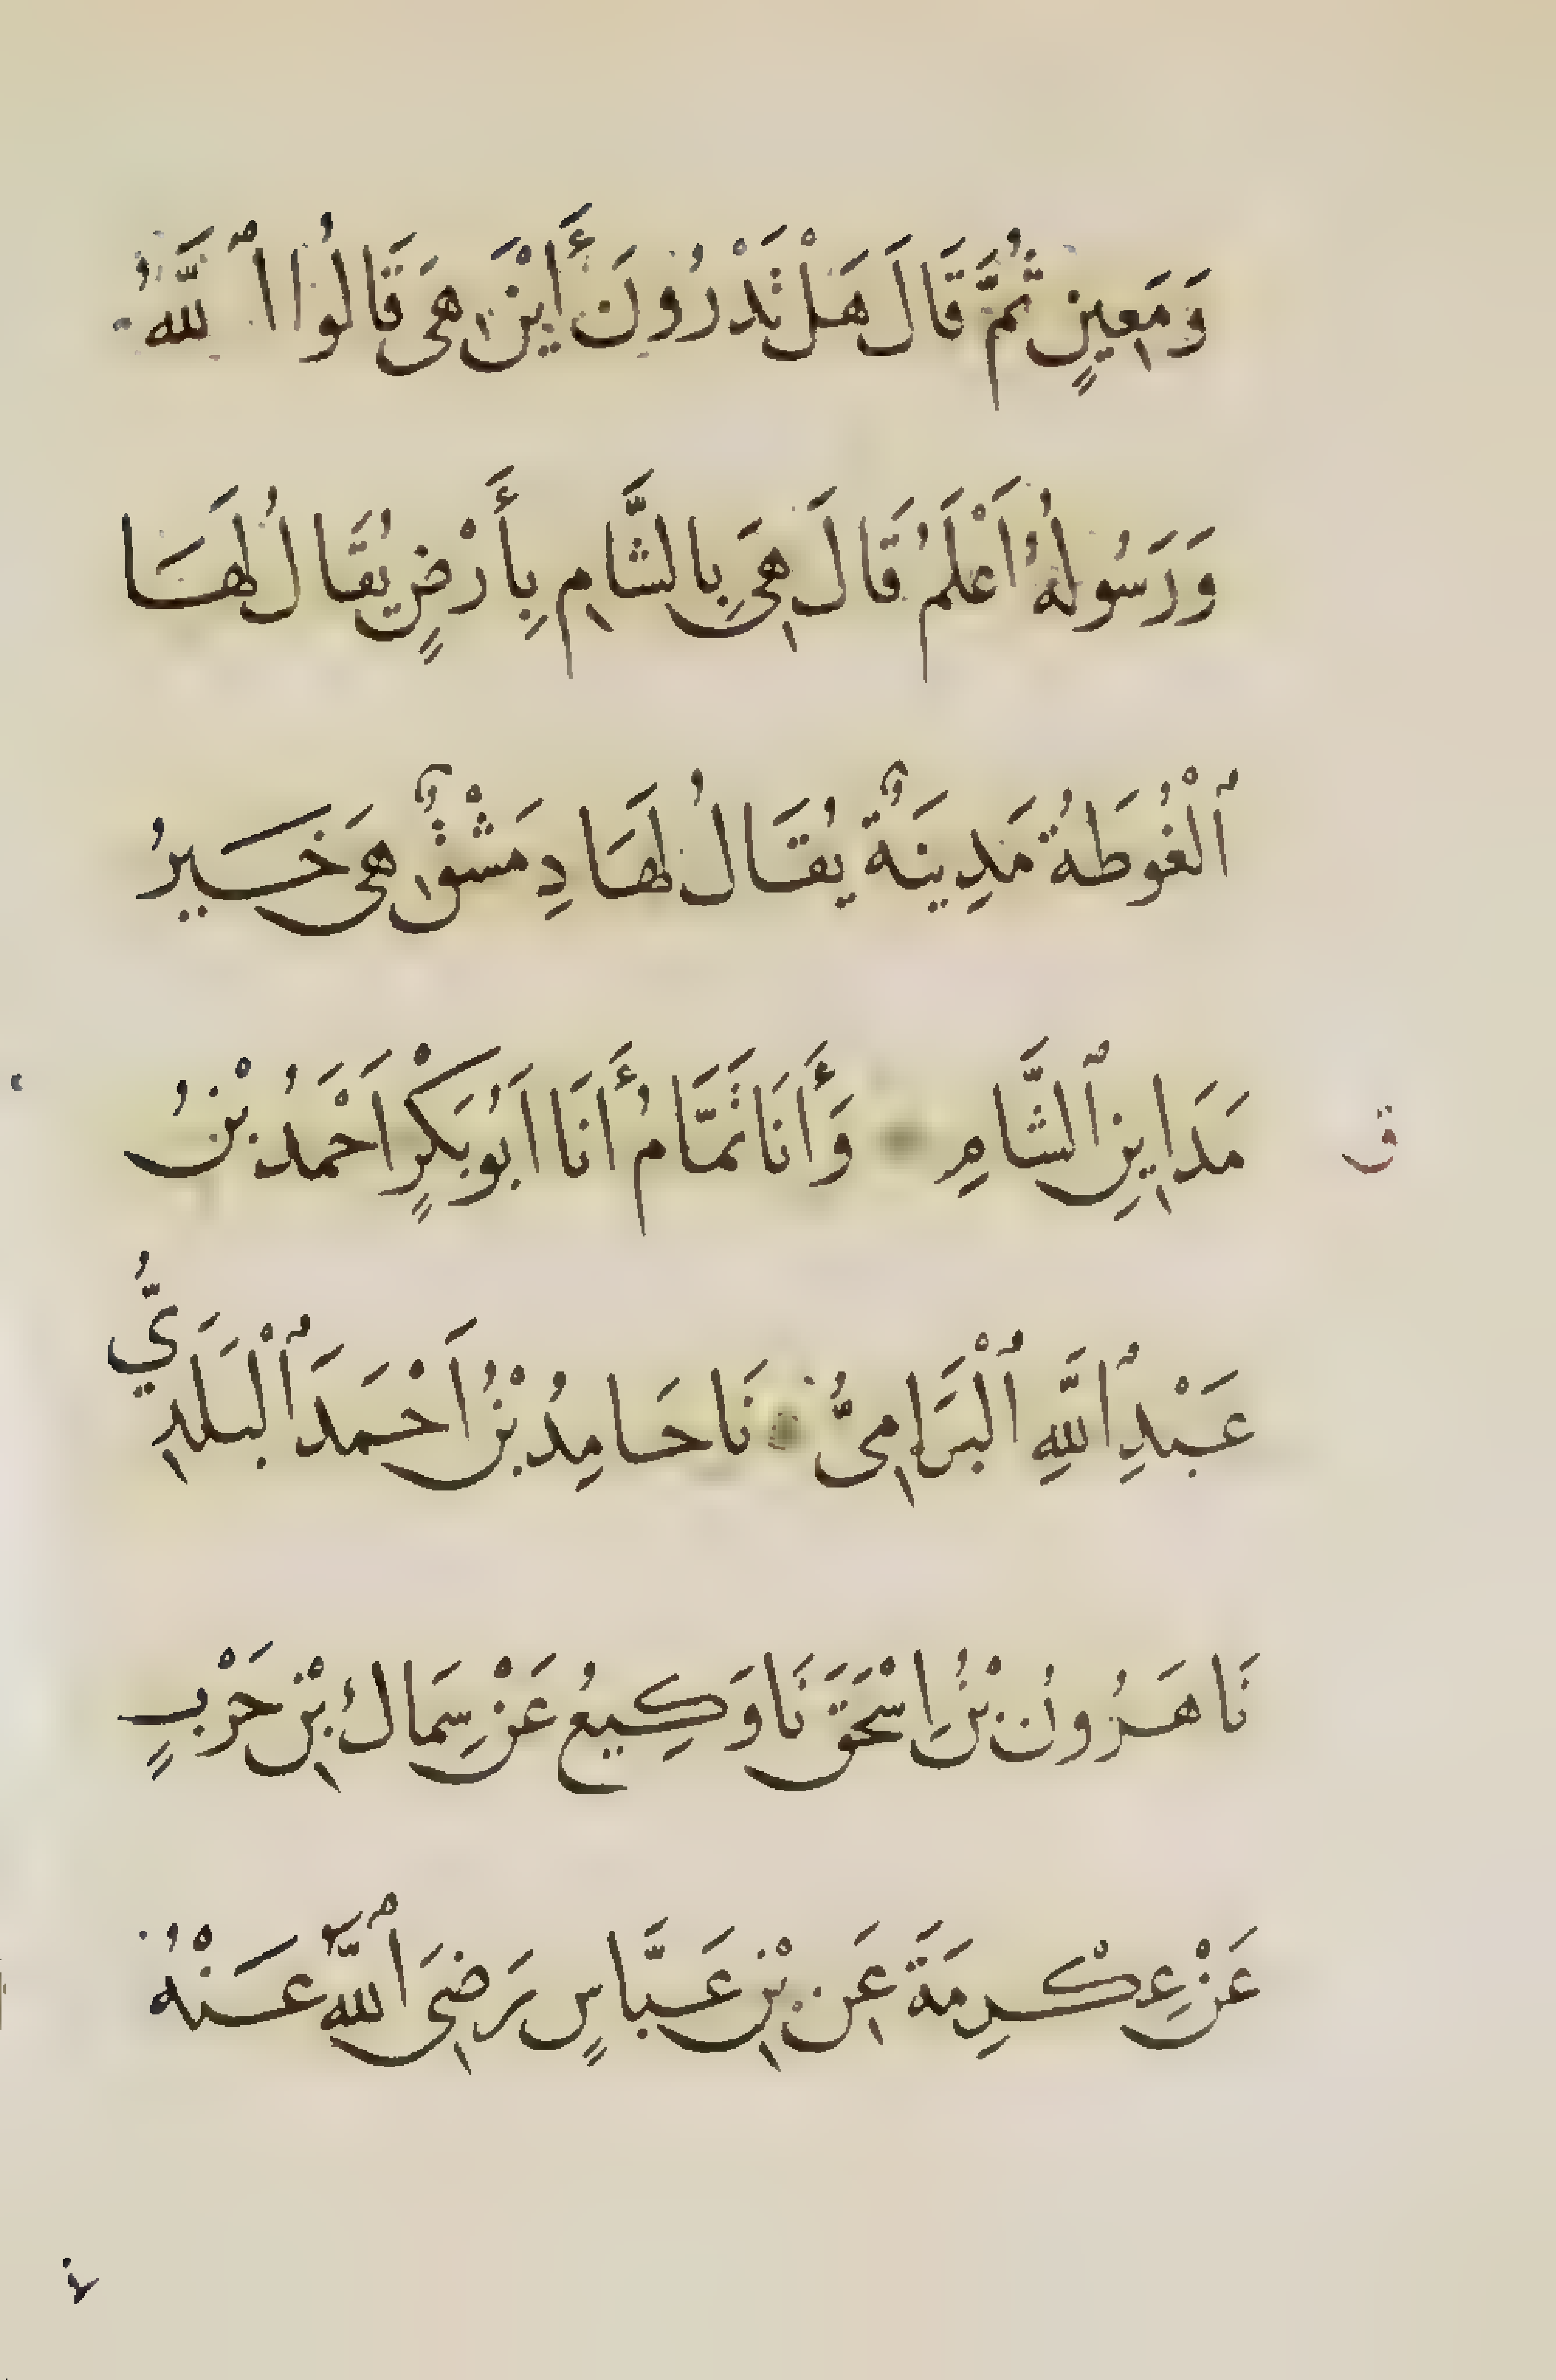 وَمَعِينٍ ثُمَّ قَالَ هَلْ تَدْرُونَ أَيْنَ هِيَ قَالُوا ٱللَّهُ
وَرَسُولُهُ أَعْلَمُ قَالَ هِيَ بِالشَّامِ بِأَرْضٍ يُقَالُ لَهَا
ٱلْغُوطَةُ مَدِينَةٌ يُقَالُ لَهَا دِمَشْقُ هِيَ خَيرُ
ق مَدَاينِ ٱلشَّامِ وَأَنَا تَمَّامُ أَنَا اَبُو بَكْرٍ اَحْمَدُ بْنُ
عَبْدِ ٱللَّهِ ٱلْبَرَامِيُّ نَا حَامِدُ بْنُ اَحْمَدَ ٱلْبَلَدِيُّ
نَا هَرُونُ بْنُ اِسْحَقَ نَا وَكِيعُ عَنْ سِمَاكِ بْنِ حَرْبٍ
عَنْ عِكْرِمَةَ عَنِ بْنِ عَبَّاسٍ رَضِيَ ٱللَّهُ عَنْهُ